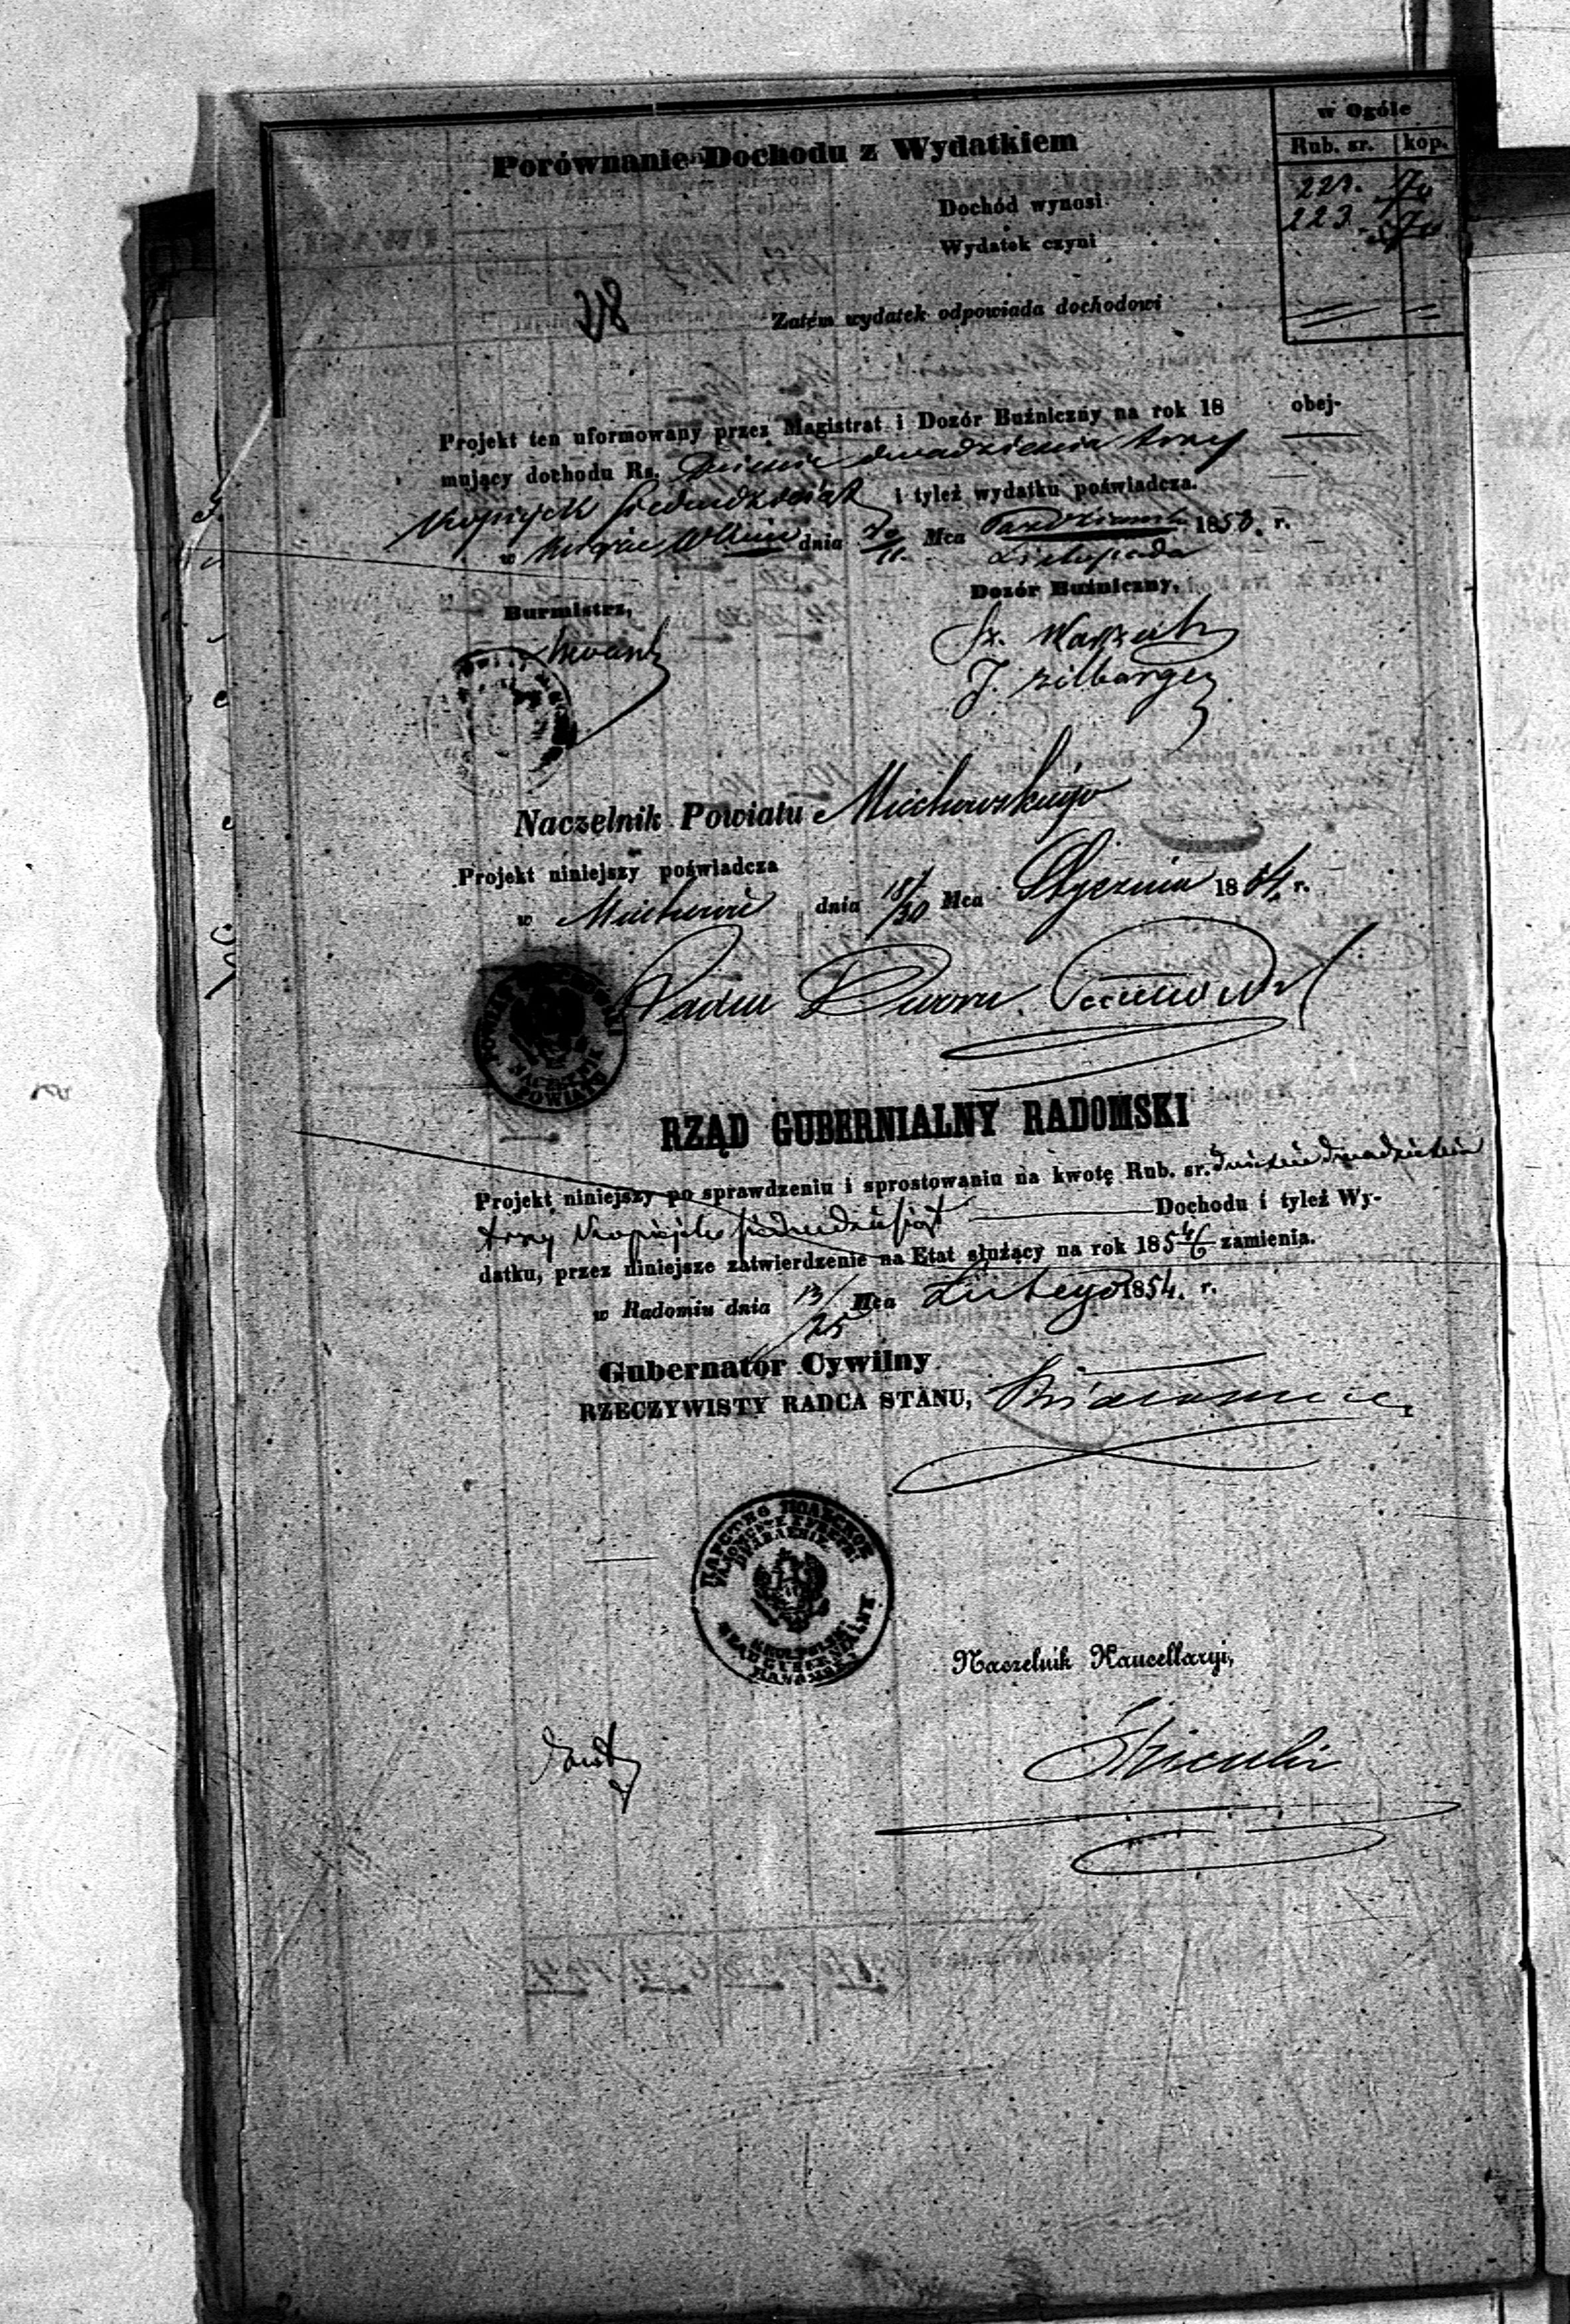 w Ogóle
Rub. sr. kop.
Porównanie Dochodu z Wydatkiem
Dochód wynosi 223. 70
Wydatek czyni 223. 70
Zatém wydatek odpowiada dochodowi
Projekt ten uformowany przez Magistrat i Dozór Buźniczny na rok 18 obej-
mujący dochodu Rs. Dwieście dwadzieścia trzy
kopiejek siedmdziesiąt i tyleż wydatku poświadcza.
w dnia Mca Października 1853. r.
Listopada
Burmistrz,
Dozór Buźniczny,
J. Zilberger
Naczelnik Powiatu Miechowskiego
Projekt niniejszy poświadcza
w Miechowie dnia 18/30 Mca Stycznia 1854. r.
Radca Dworu
POWIATU
RZĄD GUBERNIALNY RADOMSKI
Projekt niniejszy po sprawdzeniu i sprostowaniu na kwotę Rub. sr. dwieście dwadzieścia
trzy kopiejek siedmdziesiąt Dochodu i tyleż Wy-
datku, przez niniejsze zatwierdzenie na Etat służący na rok 1854/6 zamienia.
w Radomiu dnia 13/25 Mca Lutego 1854. r.
Gubernator Cywilny
RZECZYWISTY RADCA STANU,
Naczelnik Kancellaryi,